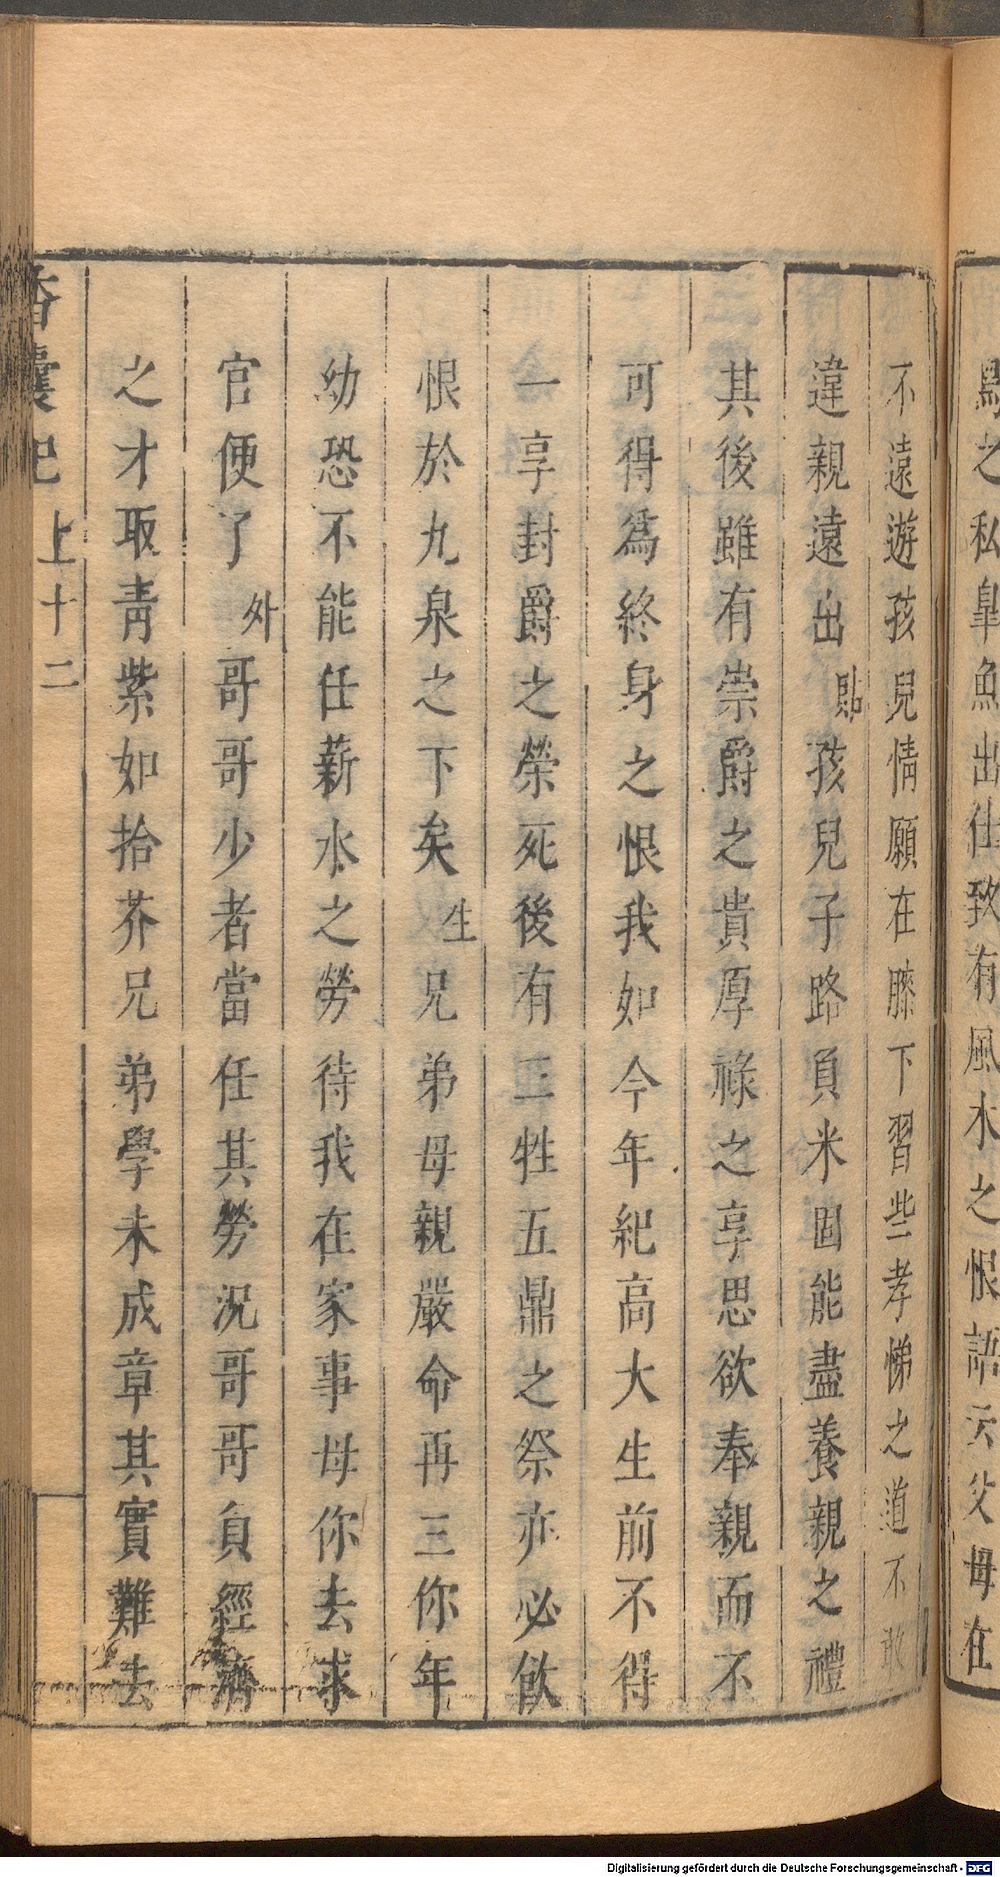 烏之私臯魚出仕致有風木之恨語云父母在
不遠遊孩兒情願在膝下習些孝悌之道不敢
違親遠出貼孩兒子路負米固能盡養親之禮
其後雖有崇爵之貴厚祿之享思欲奉親而不
可得爲終身之恨我如今年紀高大生前不得
一享封爵之榮死後有三牲五鼎之祭亦必飲
恨於九泉之下矣生兄弟母親嚴命再三你年
幼恐不能任薪水之勞待我在家事母你去求
官便了外哥哥少者當任其勞況哥哥負經濟
之才取青紫如拾芥兄弟學未成章其實難去
香囊記 上十二
Digitalisierung gefördert durch die Deutsche Forschungsgemeinschaft - DFG